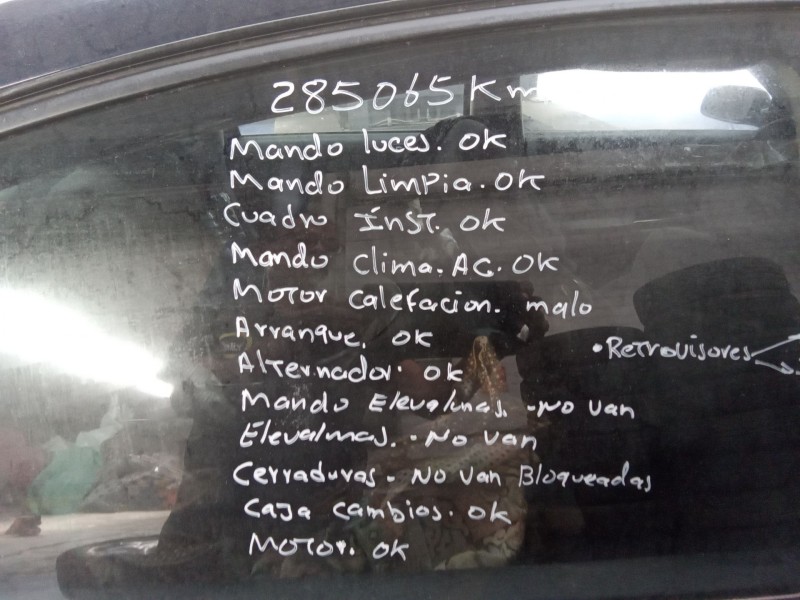 285065 Km
Mando luces. OK
Mando Limpia. OK
Cuadro Inst. OK
Mando Clima. AC. OK
Motor calefacion. malo
Arranque. OK
• Retrovisores
Alternador. OK
Mando Elevalunas. - NO van
Elevalunas. - NO van
Cerraduras - NO Van Bloqueadas
Caja Cambios. OK
Motor. OK